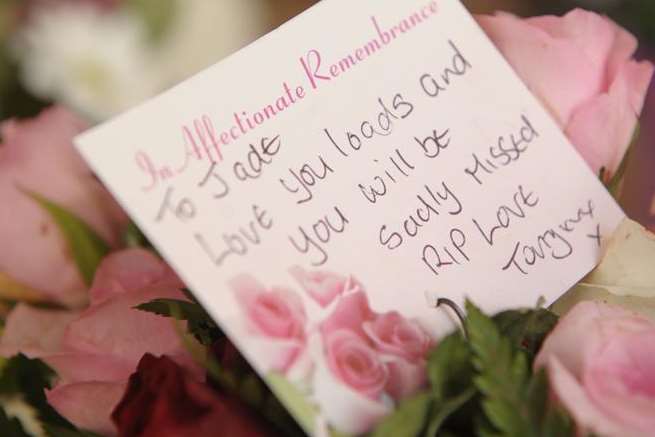 In Affectionate Remembrance
To Jade
Love you loads and
you will be
sadly missed
RIP Love
x
x